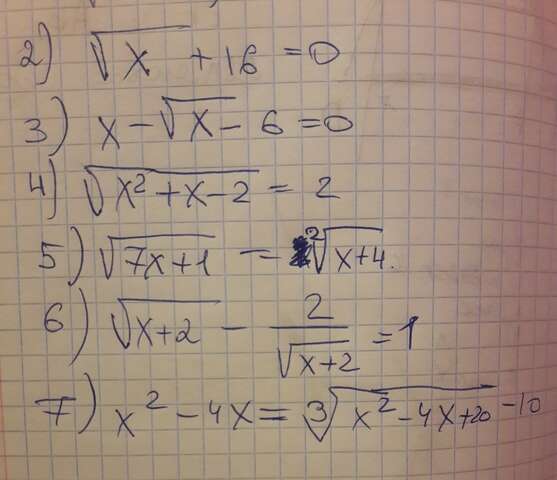 2) √x + 16 = 0
3) x - √x - 6 = 0
4) √(x² + x - 2) = 2
5) √(7x + 1) = ²√(x + 4).
6) √(x + 2) - 2/√(x + 2) = 1
7) x² - 4x = 3√(x² - 4x + 20) - 10